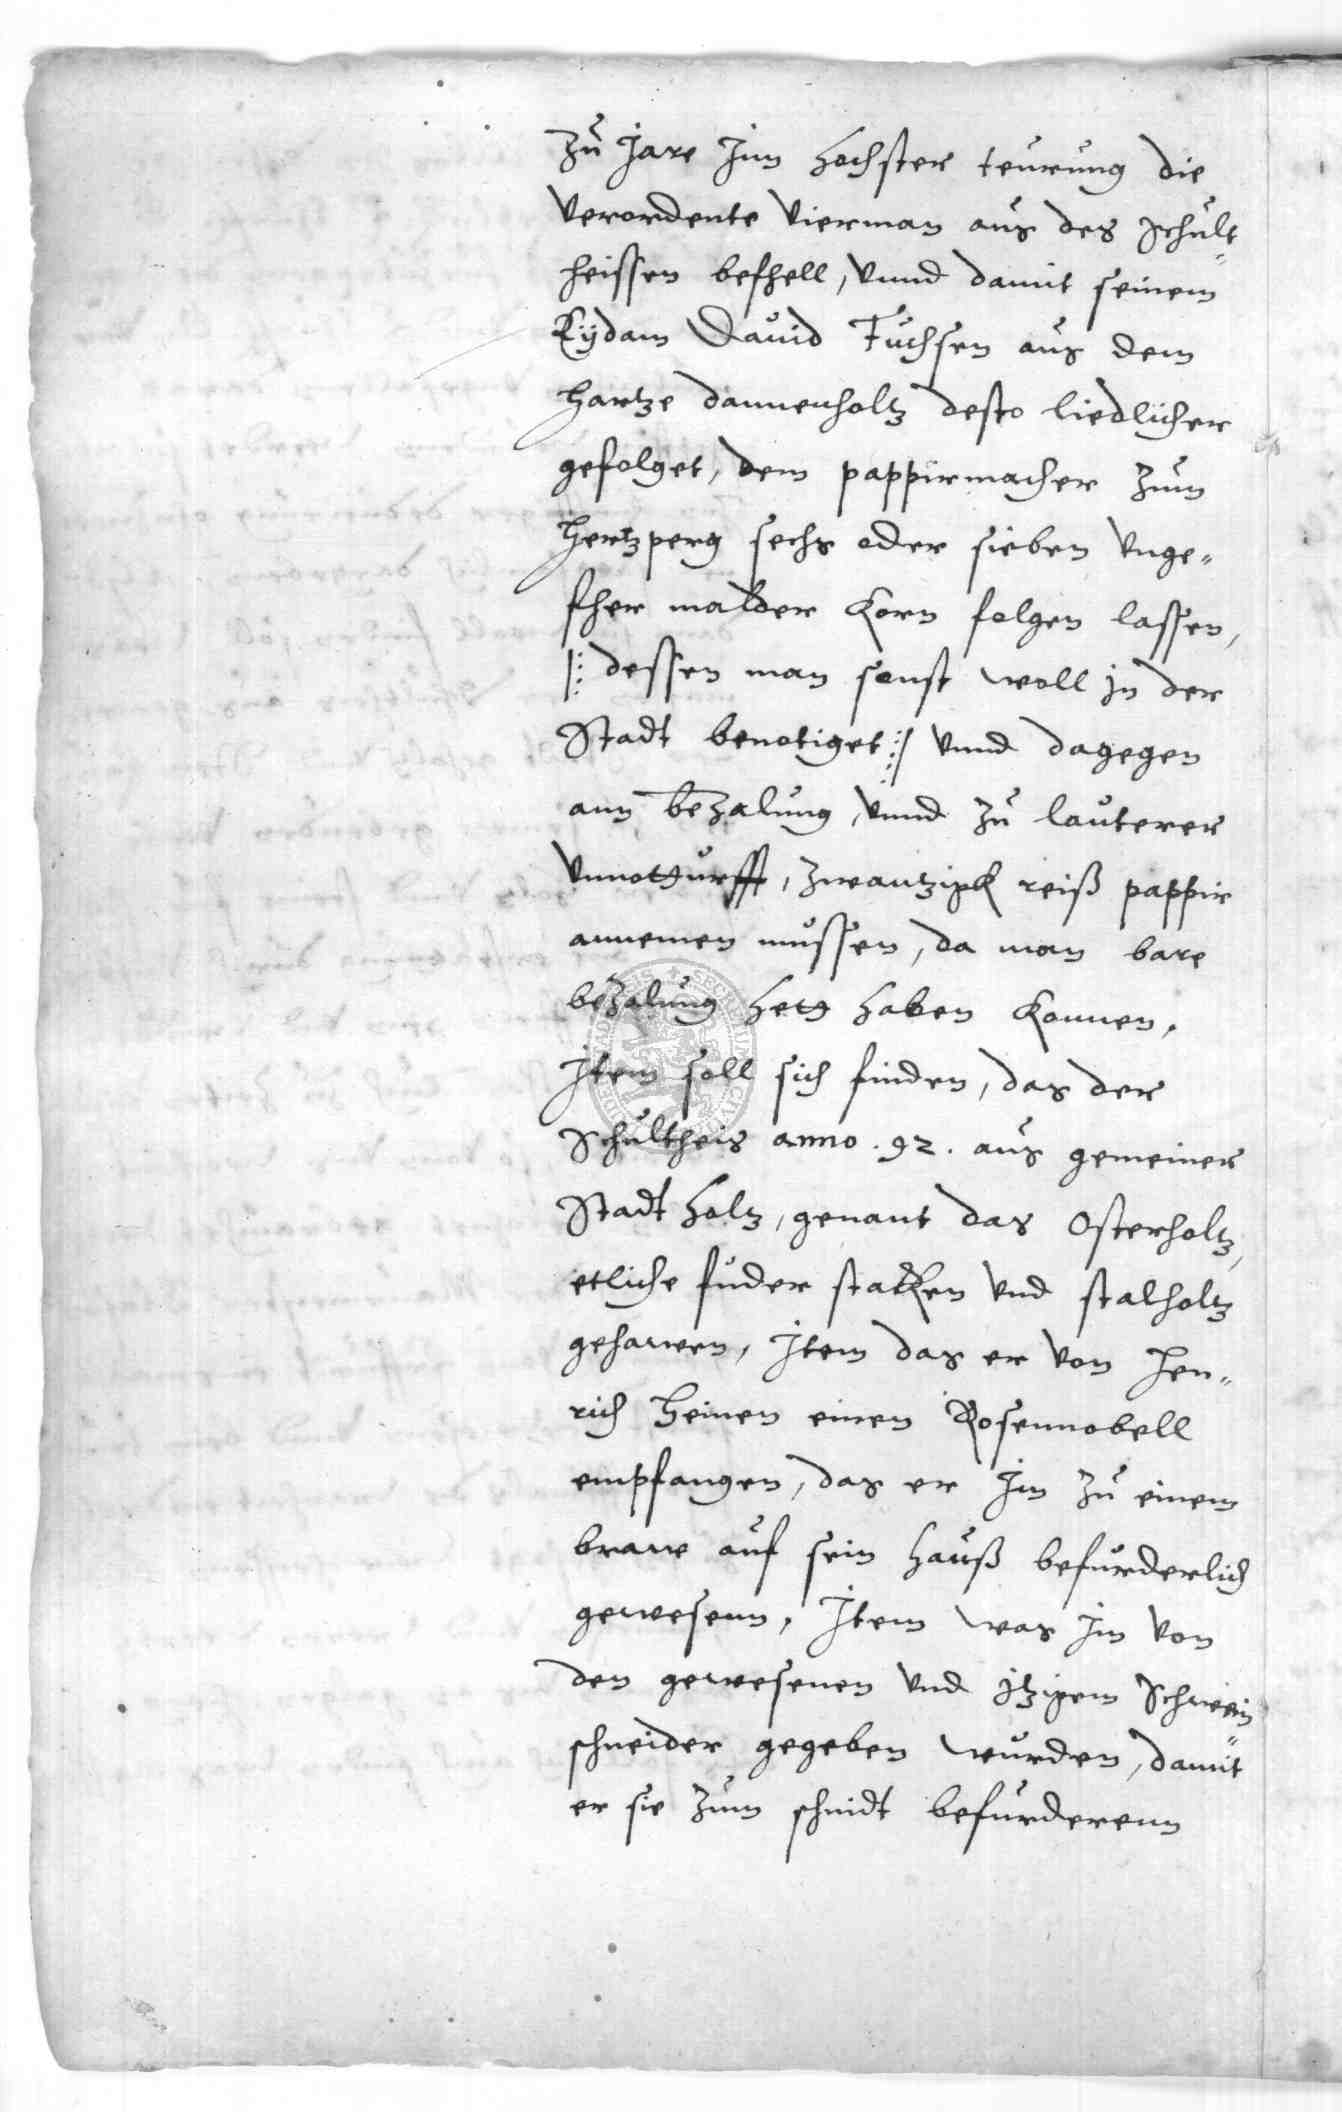 Zu Jare Jnn hochster teurung die
verordente Vierman aus des Schult„
heissen befhell, vnnd damit seinem
Eydam Dauid Fuchsen aus dem
Hartze dannenholtz desto liedlicher
gefolget, dem pappirmacher zum
Hertzperg sechs oder sieben vnge„
fher malder Korn folgen lassen,
|: dessen man sonst woll in der
Stadt benotiget :| vnnd dagegen
ann bezalung, vnnd zu lauterer
vnnotturfft, zwantzigk reiß pappir
annemen mussen, da man bare
bezalung hett haben konnen.
Jtem soll sich finden, das der
Schultheis anno . 92 . aus gemeiner
Stadt holtz, genant das Osterholtz,
etliche fuder stacken vnd stalholtz
gehawen, Jtem das er von Hen„
rich Heinen einen Rosennobell
empfangen, das er Jm zu einem
brawe auf sein hauß befurderlich
gewesenn, Jtem was Jm von
den gewesenen vnd Jtzigem Schwein„
schneider gegeben wurden, damit
er sie zum schnidt befurderenn